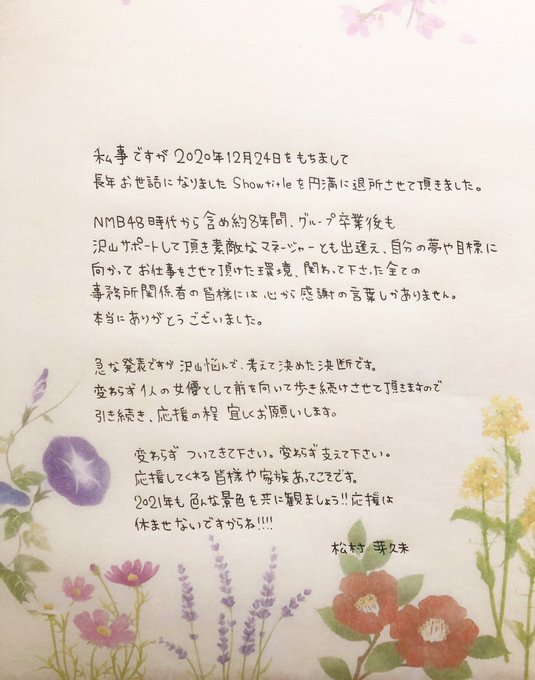 私事ですが 2020年12月24日をもちまして
長年お世話になりました Showtitleを円満に退所させて頂きました。
NMB48時代から含め約8年間、グループ卒業後も
沢山サポートして頂き素敵なマネージャーとも出逢え、自分の夢や目標に
向かって お仕事をさせて頂けた環境、関わって下さった全ての
事務所関係者の皆様には 心から感謝の言葉しかありません。
本当にありがとうございました。
急な発表ですが 沢山悩んで、考えて決めた決断です。
変わらず 1人の女優として前を向いて歩き続けさせて頂きますので
引き続き、応援の程 宜しくお願いします。
変わらず ついてきて下さい。変わらず支えて下さい。
応援してくれる皆様や家族あってこそです。
2021年も色んな景色を共に観ましょう!!応援は
休ませないですからね!!!!
松村 芽久未